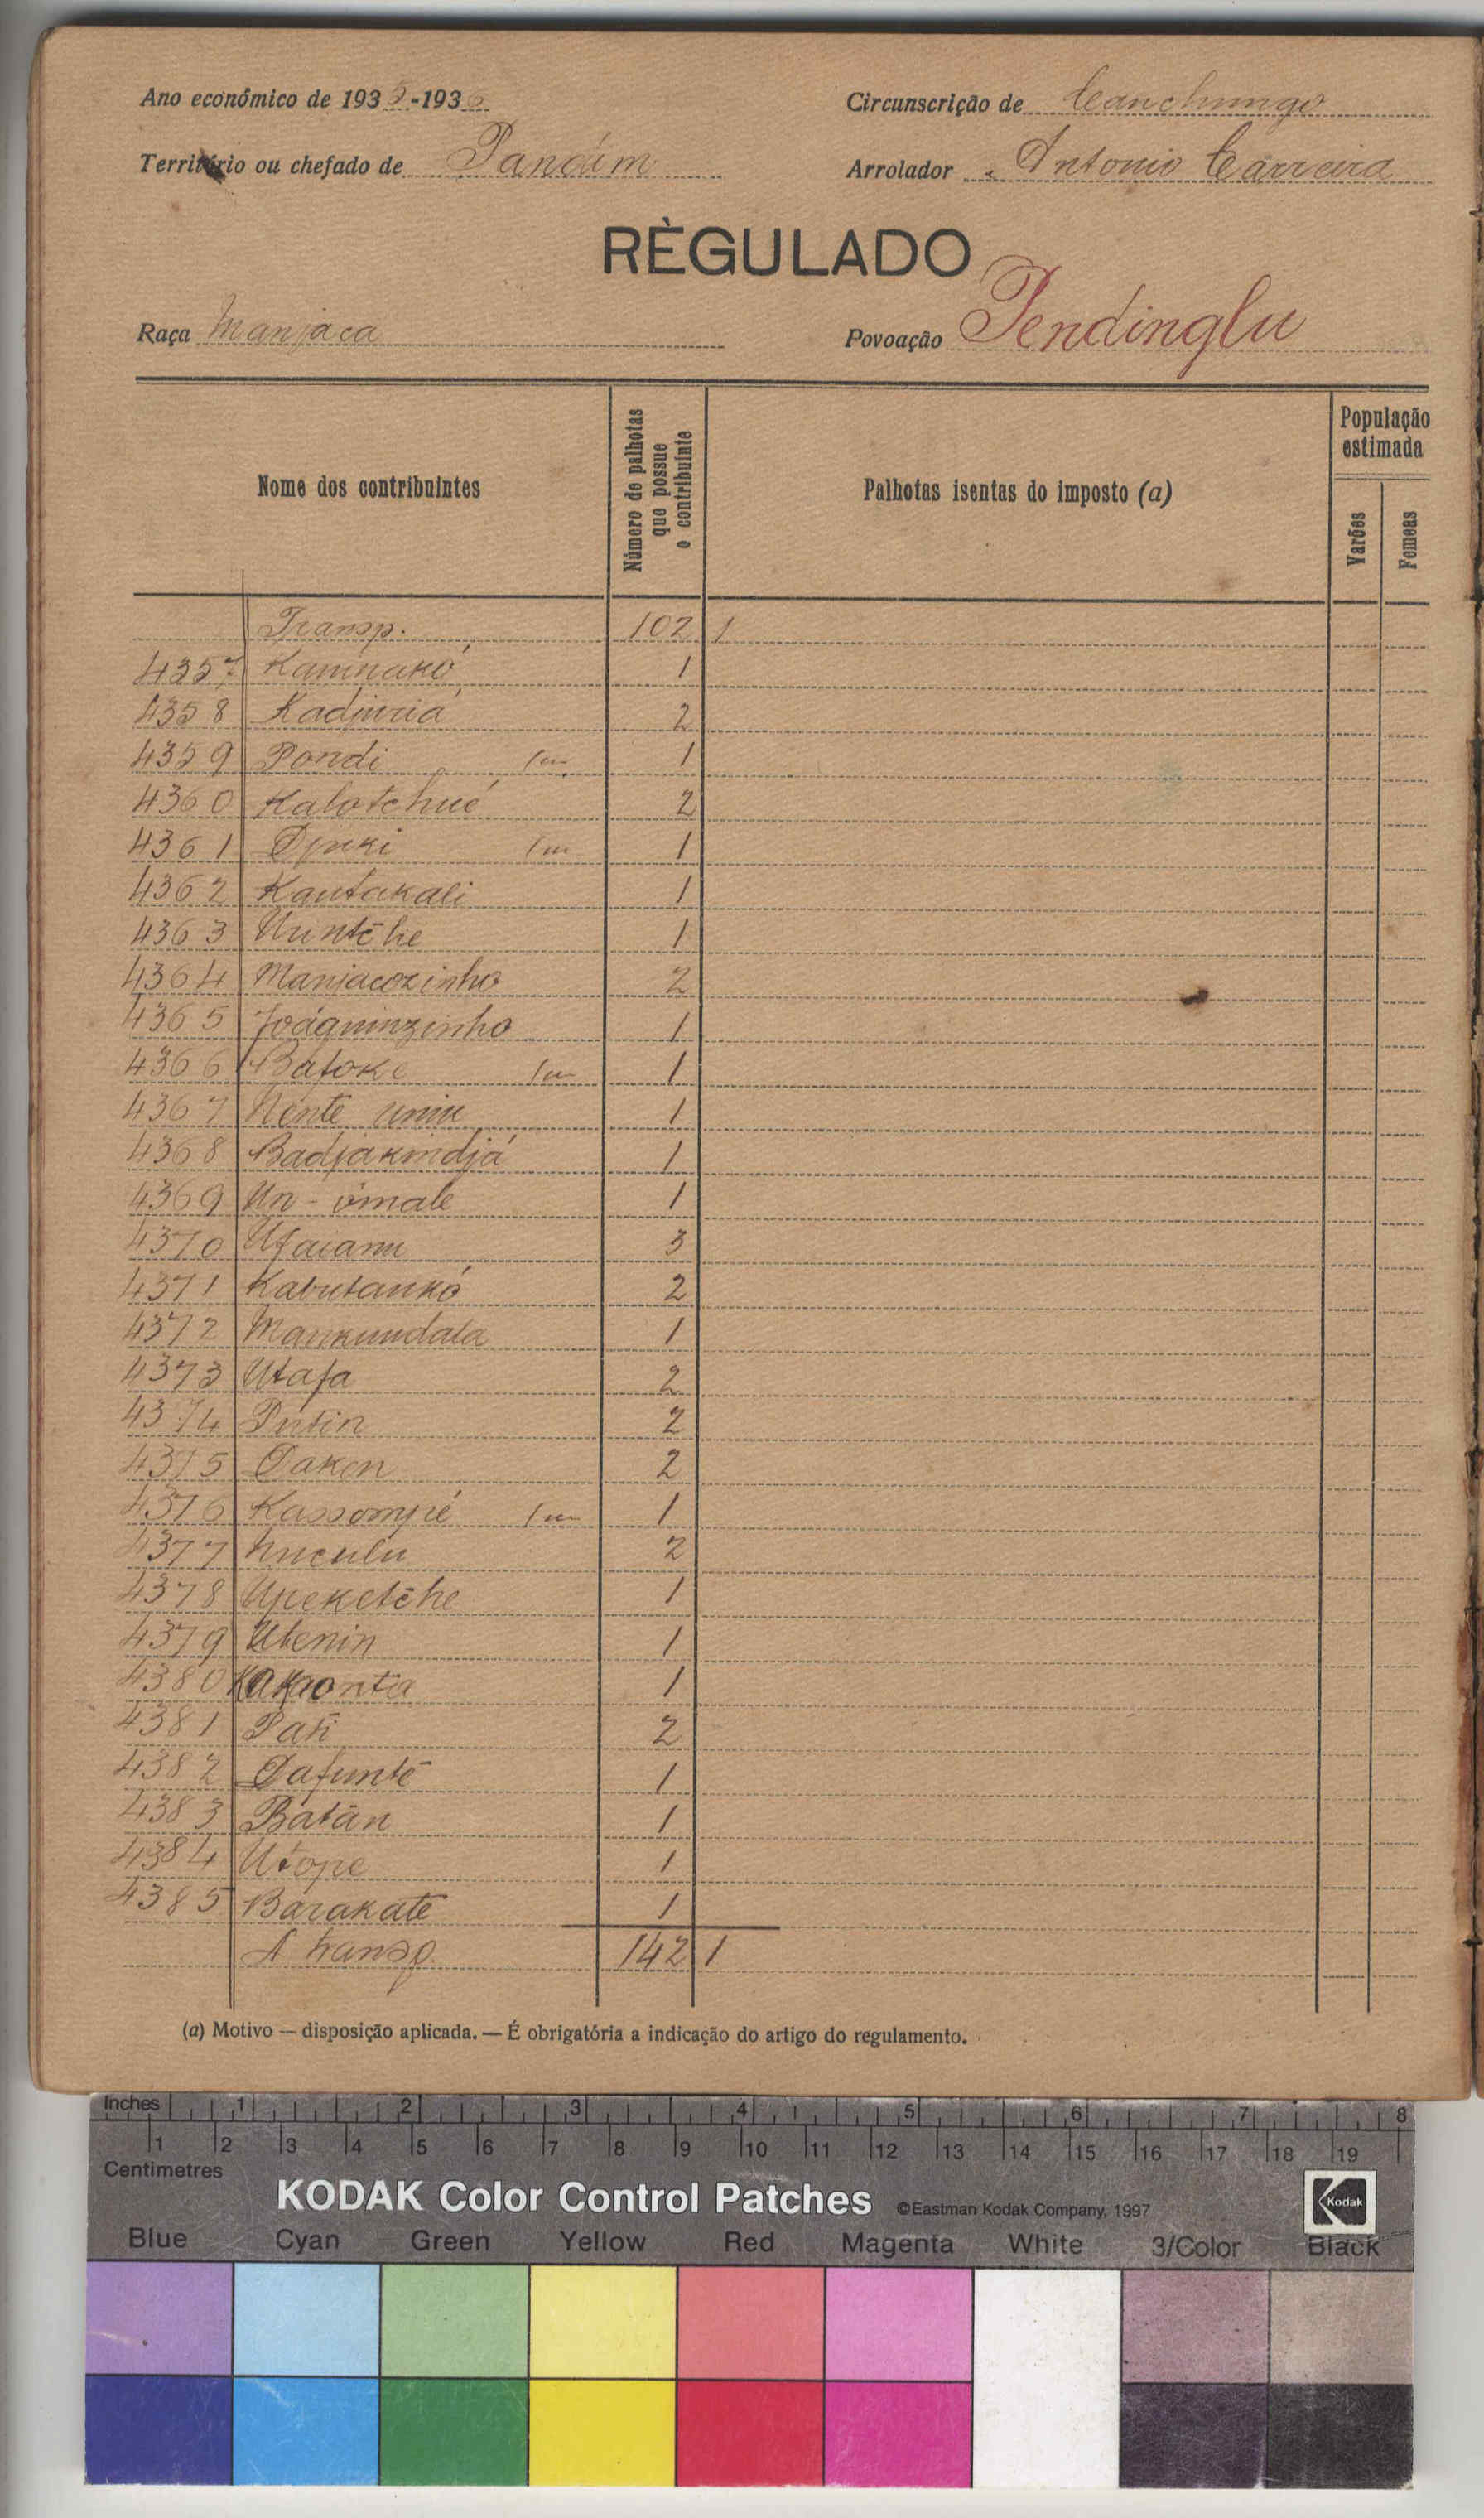 Ano económico de 1935-1936
Circunscrição de Canchungo
Território ou chefado de Pandim
Arrolador Antonio Carreira
RÈGULADO
Raça Manjaca
Povoação Pendinglu
Nome dos contribuintes
Número de palhotas que possue o contribuinte
Palhotas isentas do imposto (a)
População estimada
Varões
Femeas
Transp. 102 1
4357 Kamnakó 1
4358 Kadjuriá 2
4359 Pondi 1
4360 Kalotchué 2
4361 Djuki 1
4362 Kautakali 1
4363 Untche 1
4364 Manjacozinho 2
4365 Joáquinzinho 1
4366 Bafoke 1
4367 Nente 1
4368 Badjakindjá 1
4369 Un-ómale 1
4370 3
4371 Kabutankó 2
4372 Mankundala 1
4373 Utafa 2
4374 Putin 2
4375 Dakon 2
4376 Kassompié 1
4377 Nuculu 2
4378 Upeketche 1
4379 Ubenin 1
4380 1
4381 Pati 2
4382 Dafunté 1
4383 Batãn 1
4384 Utope 1
4385 Barakate 1
A transp. 142 1
(a) Motivo — disposição aplicada. — É obrigatória a indicação do artigo do regulamento.
Inches 1 2 3 4 5 6 7 8
1 2 3 4 5 6 7 8 9 10 11 12 13 14 15 16 17 18 19
Centimetres
KODAK Color Control Patches ©Eastman Kodak Company, 1997 Kodak
Blue Cyan Green Yellow Red Magenta White 3/Color Black